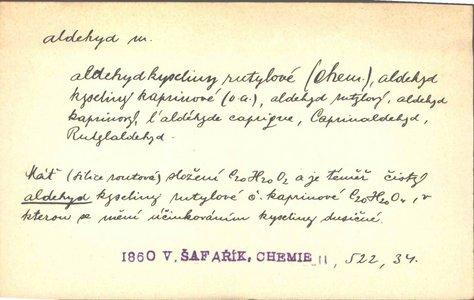 aldehyd m.
aldehyd kyseliny rutylové (chem.), aldehyd
kyseliny kaprinové (v.a.), aldehyd rutylový, aldehyd
kaprinový, l'aldéhyde caprique, Caprinaldehyd,
Rutylaldehyd.
(silice routová) složení C20H20O2 a je téměř čistý
aldehyd kyseliny rutylové č. kaprinové C20H20O4, v
kterou se mění účinkováním kyseliny dusičné.
1860 V. ŠAFAŘÍK, CHEMIE II, 522, 34.